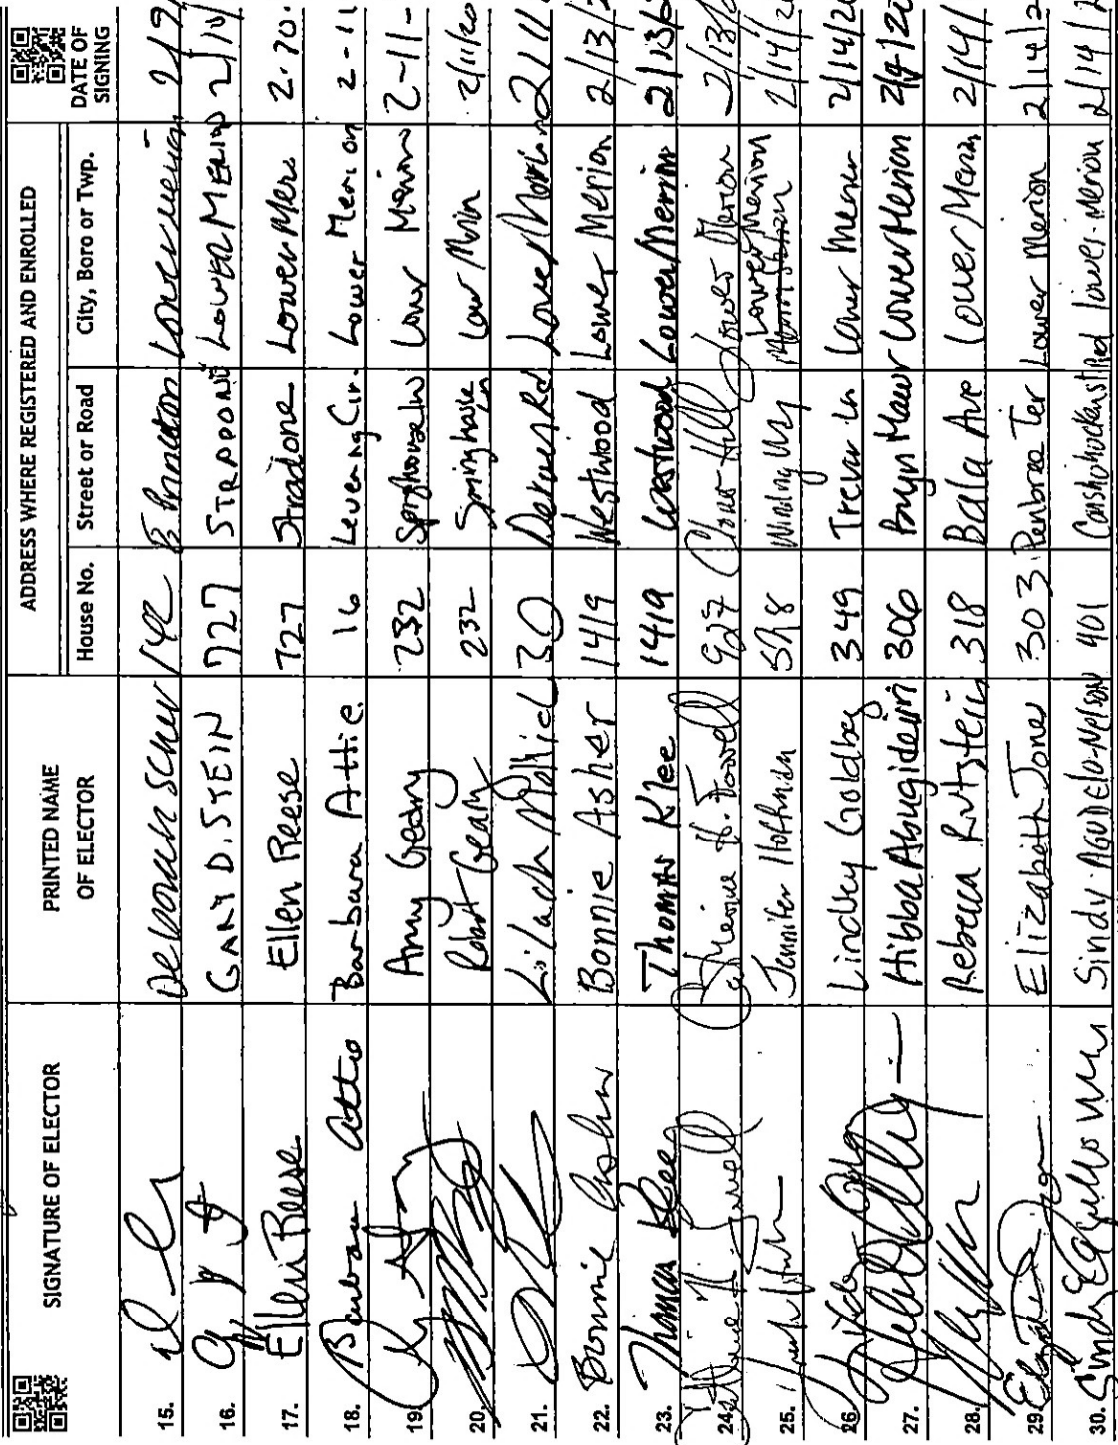 SIGNATURE OF ELECTOR PRINTED NAME OF ELECTOR ADDRESS WHERE REGISTERED AND ENROLLED DATE OF SIGNING
House No. Street or Road City, Boro or Twp.
15. 142 Lower Merion 2/9/
16. GARY D. STEIN 727 STRADONE LOWER MERION 2/10/
17. Ellen Reese Ellen Reese 727 Stradone Lower Meri 2.10.
18. Barbara Attie Barbara Attie 16 Levering Cir. Lower Merion 2-11
19. Amy Geary 232 Springhouse Ln Lower Merion 2-11-
20. Robert Geary 232 Springhouse Ln Low Merin 2/11/20
21. 30 Lower Merion 2/11/
22. Bonnie Asher Bonnie Asher 1419 Westwood Lower Merion 2/13/2
23. Thomas Klee Thomas Klee 1419 Westwood Lower Merion 2/13/2
24. 927 Lower Merion 2/13/
25. Jennifer Hoffman Winding Way Lower Merion 2/14/2
26. Lindsey Goldberg 349 Trevor Ln Lower Merion 2/14/20
27. Hibba Abugideiri 306 Bryn Mawr Lower Merion 2/14/20
28. Rebecca Rutstein 318 Bala Ave Lower Merion 2/14/
29. Elizabeth Jones 303 Penbree Ter Lower Merion 2/14/2
30. Sindy AGUDELO-NELSON 401 Conshohocken St Rd Lower-Merion 2/14/2